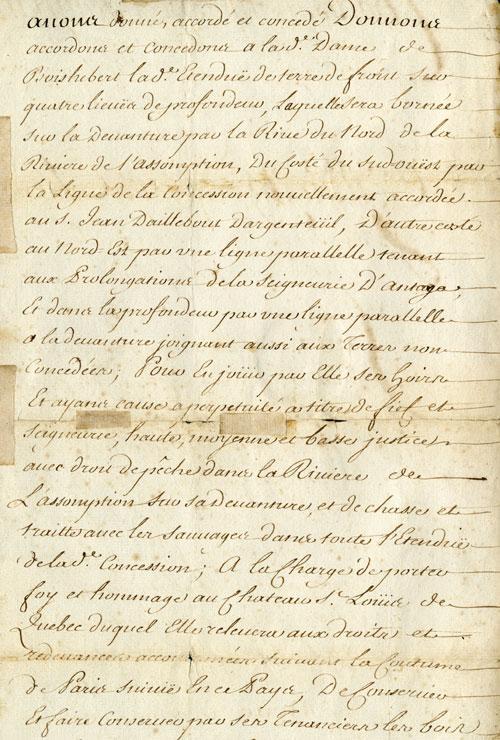 avons donné, accordé et concedé Donnons
accordons et concedons a la d.e Dame de
Boishebert la d.e Etenduë de terre de front sur
quatre lieues de profondeur, Laquelle sera bornée
sur la Devanture par la Rive du Nord de la
Riviere de l'assomption, Du Costé du sud-ouëst par
la Ligne de la Concession nouvellement accordée
au s. Jean Daillebout Dargenteüil, D'autre costé
au Nord-Est par vne ligne parallelle tenant
aux Prolongations de la Seigneurie D'antaya,
Et dans la profondeur par vne ligne parallelle
a la devanture joignant aussi aux Terres non
Concedées; Pour En joüir par Elle ses hoirs
Et ayans cause a perpetuité a titre de fief et
seigneurie, haute, moyenne et basse justice
avec droit de pêche dans la Riviere de
L'assomption sur sa devanture, et de chasse et
traitte avec les sauvages dans toute l'Etenduë
de la d.e Concession; A la Charge de porter
foy et hommage au Chateau S.t Loüis de
Quebec duquel Elle relevera aux droits et
redevances accoutumées suivant la Coutume
de Paris suivie En ce Pays, De Conserver
Et faire Conserver par ses Tenanciers les bois